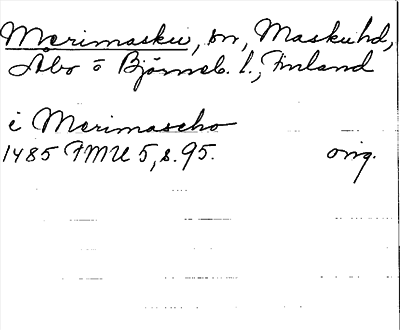 Merimasku, sn, Maskuhd,
Åbo o Björneb. l., Finland
i Merimascho
1485 FMU 5, s. 95. orig.